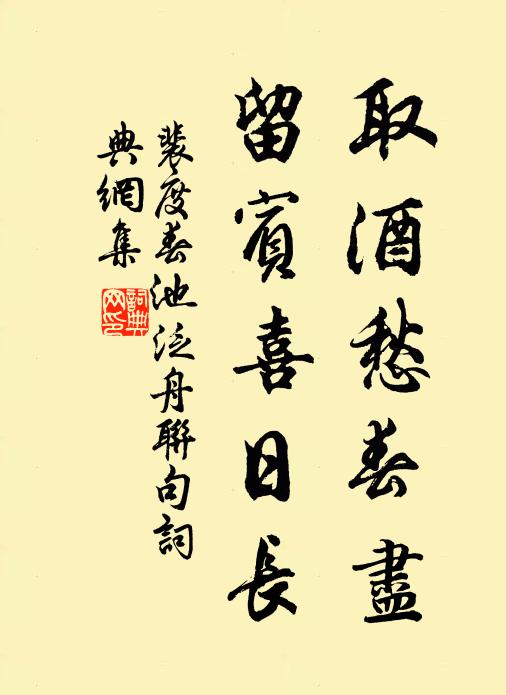 取酒愁春盡
留賓喜日長
裴度春池泛舟聯句詞
典網集
詞典
网印